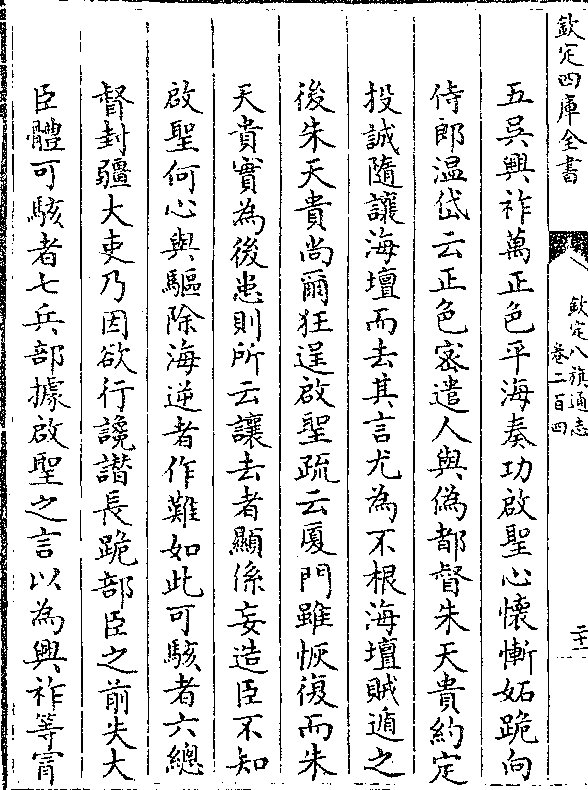 欽定四庫全書
欽定八旗通志
卷二百四
二十一
五吳興祚萬正色平海奏功啟聖心懷慚妬跪向
侍郎溫岱云正色宻遣人與偽都督朱天貴約定
投誠隨讓海壇而去其言尤為不根海壇賊遁之
後朱天貴尚爾狂逞啟聖疏云厦門雖恢復而朱
天貴實為後患則所云讓去者顯係妄造臣不知
啟聖何心與驅除海逆者作難如此可駭者六總
督封疆大吏乃因欲行讒譖長跪部臣之前失大
臣體可駭者七兵部據啟聖之言以為興祚等冐